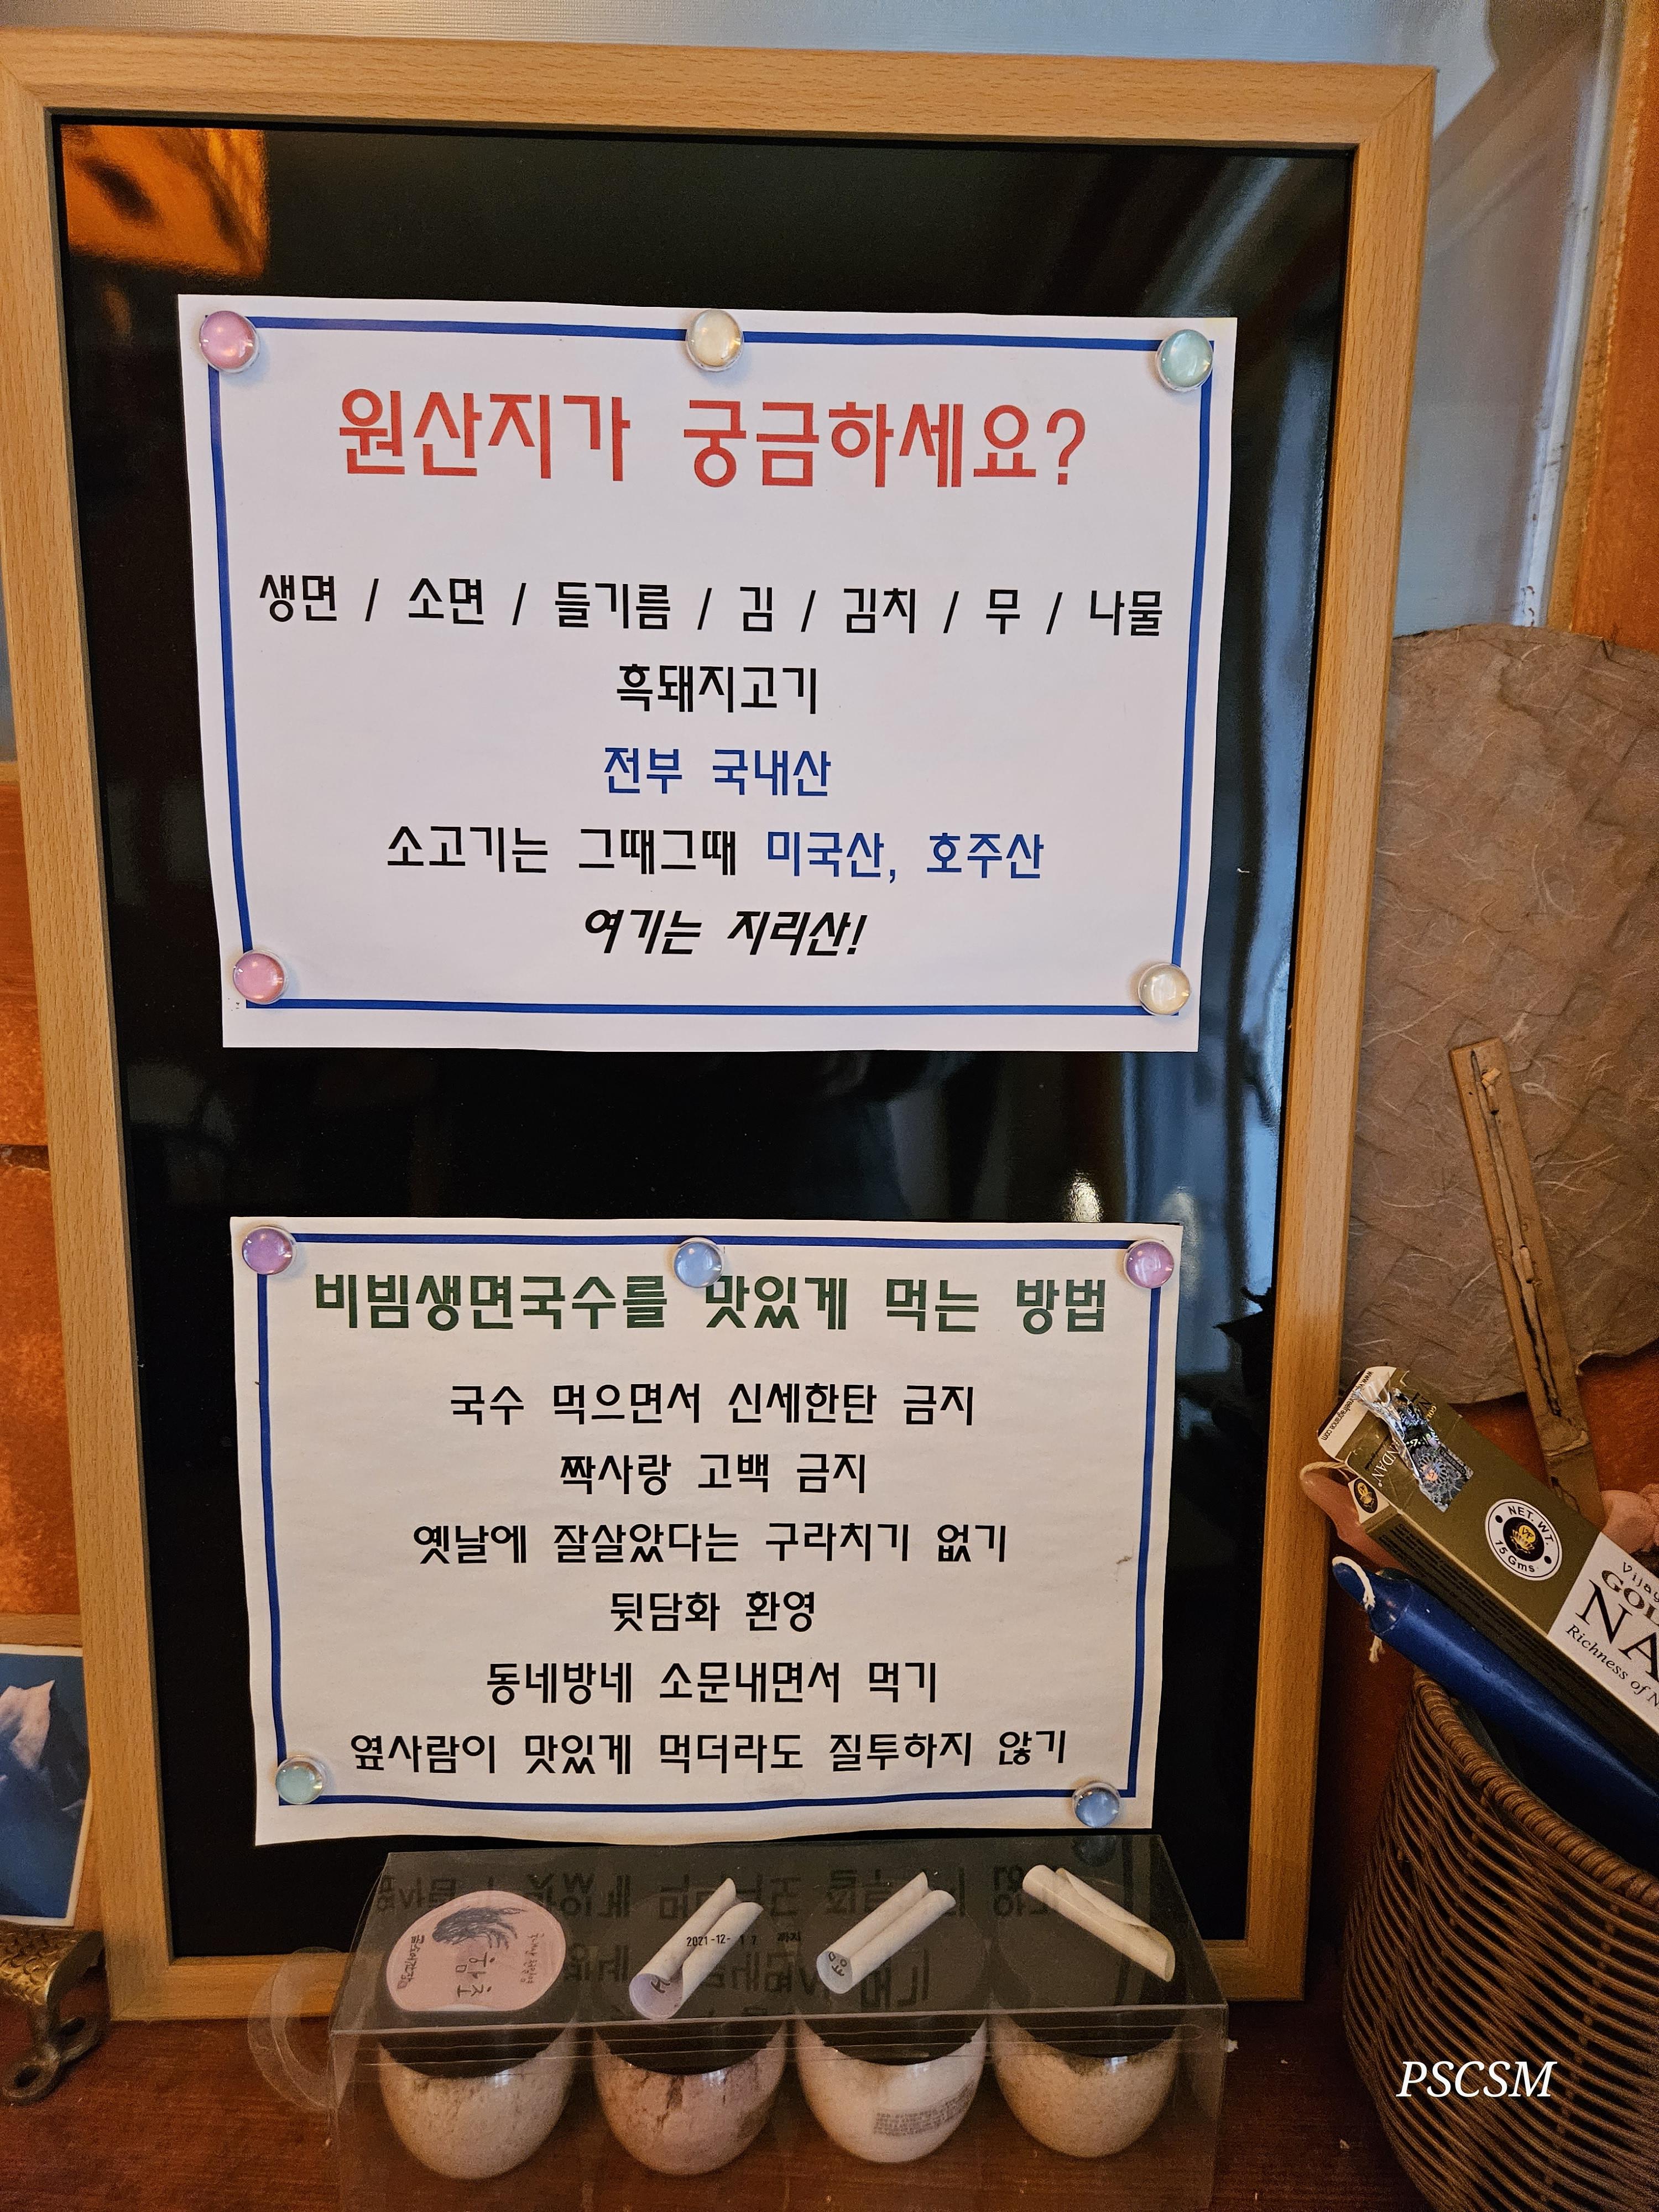 원산지가 궁금하세요?
생면 / 소면 / 들기름 / 김 / 김치 / 무 / 나물
흑돼지고기
전부 국내산
소고기는 그때그때 미국산, 호주산
여기는 지리산!
비빔생면국수를 맛있게 먹는 방법
국수 먹으면서 신세한탄 금지
짝사랑 고백 금지
옛날에 잘살았다는 구라치기 없기
뒷담화 환영
동네방네 소문내면서 먹기
옆사람이 맛있게 먹더라도 질투하지 않기
NET. WT.
15 Gms
Richness of
2021-12-17 까지
PSCSM